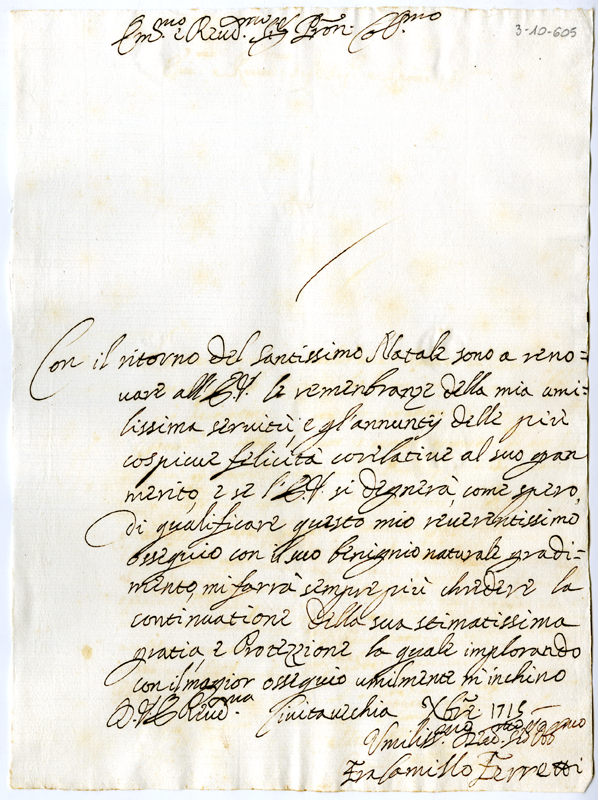 Em.mo e Reud.mo Sig.re Pron. Col.mo
3-10-605
Con il ritorno del Santissimo Natale sono a reno=
uare all'E.V. le remenbranze della mia umi=
lissima seruitù, e gl'annuntij delle più
cospicue felicità corelatiue al suo gran
merito, e se l'E.V. si degnerà, come spero,
di qualificare questo mio reuerentissimo
ossequio con il suo benignio naturale gradi=
mento, mi farrà sempre più chredere la
continuatione della sua stimatissima
gratia, e Protezzione la quale implorando
con il magior ossequio umilmente m'inchino
D.V.E. Reud.ma Ciuitauechia Xbre. 1715
Umiliss.mo
Fra Camillo Ferretti